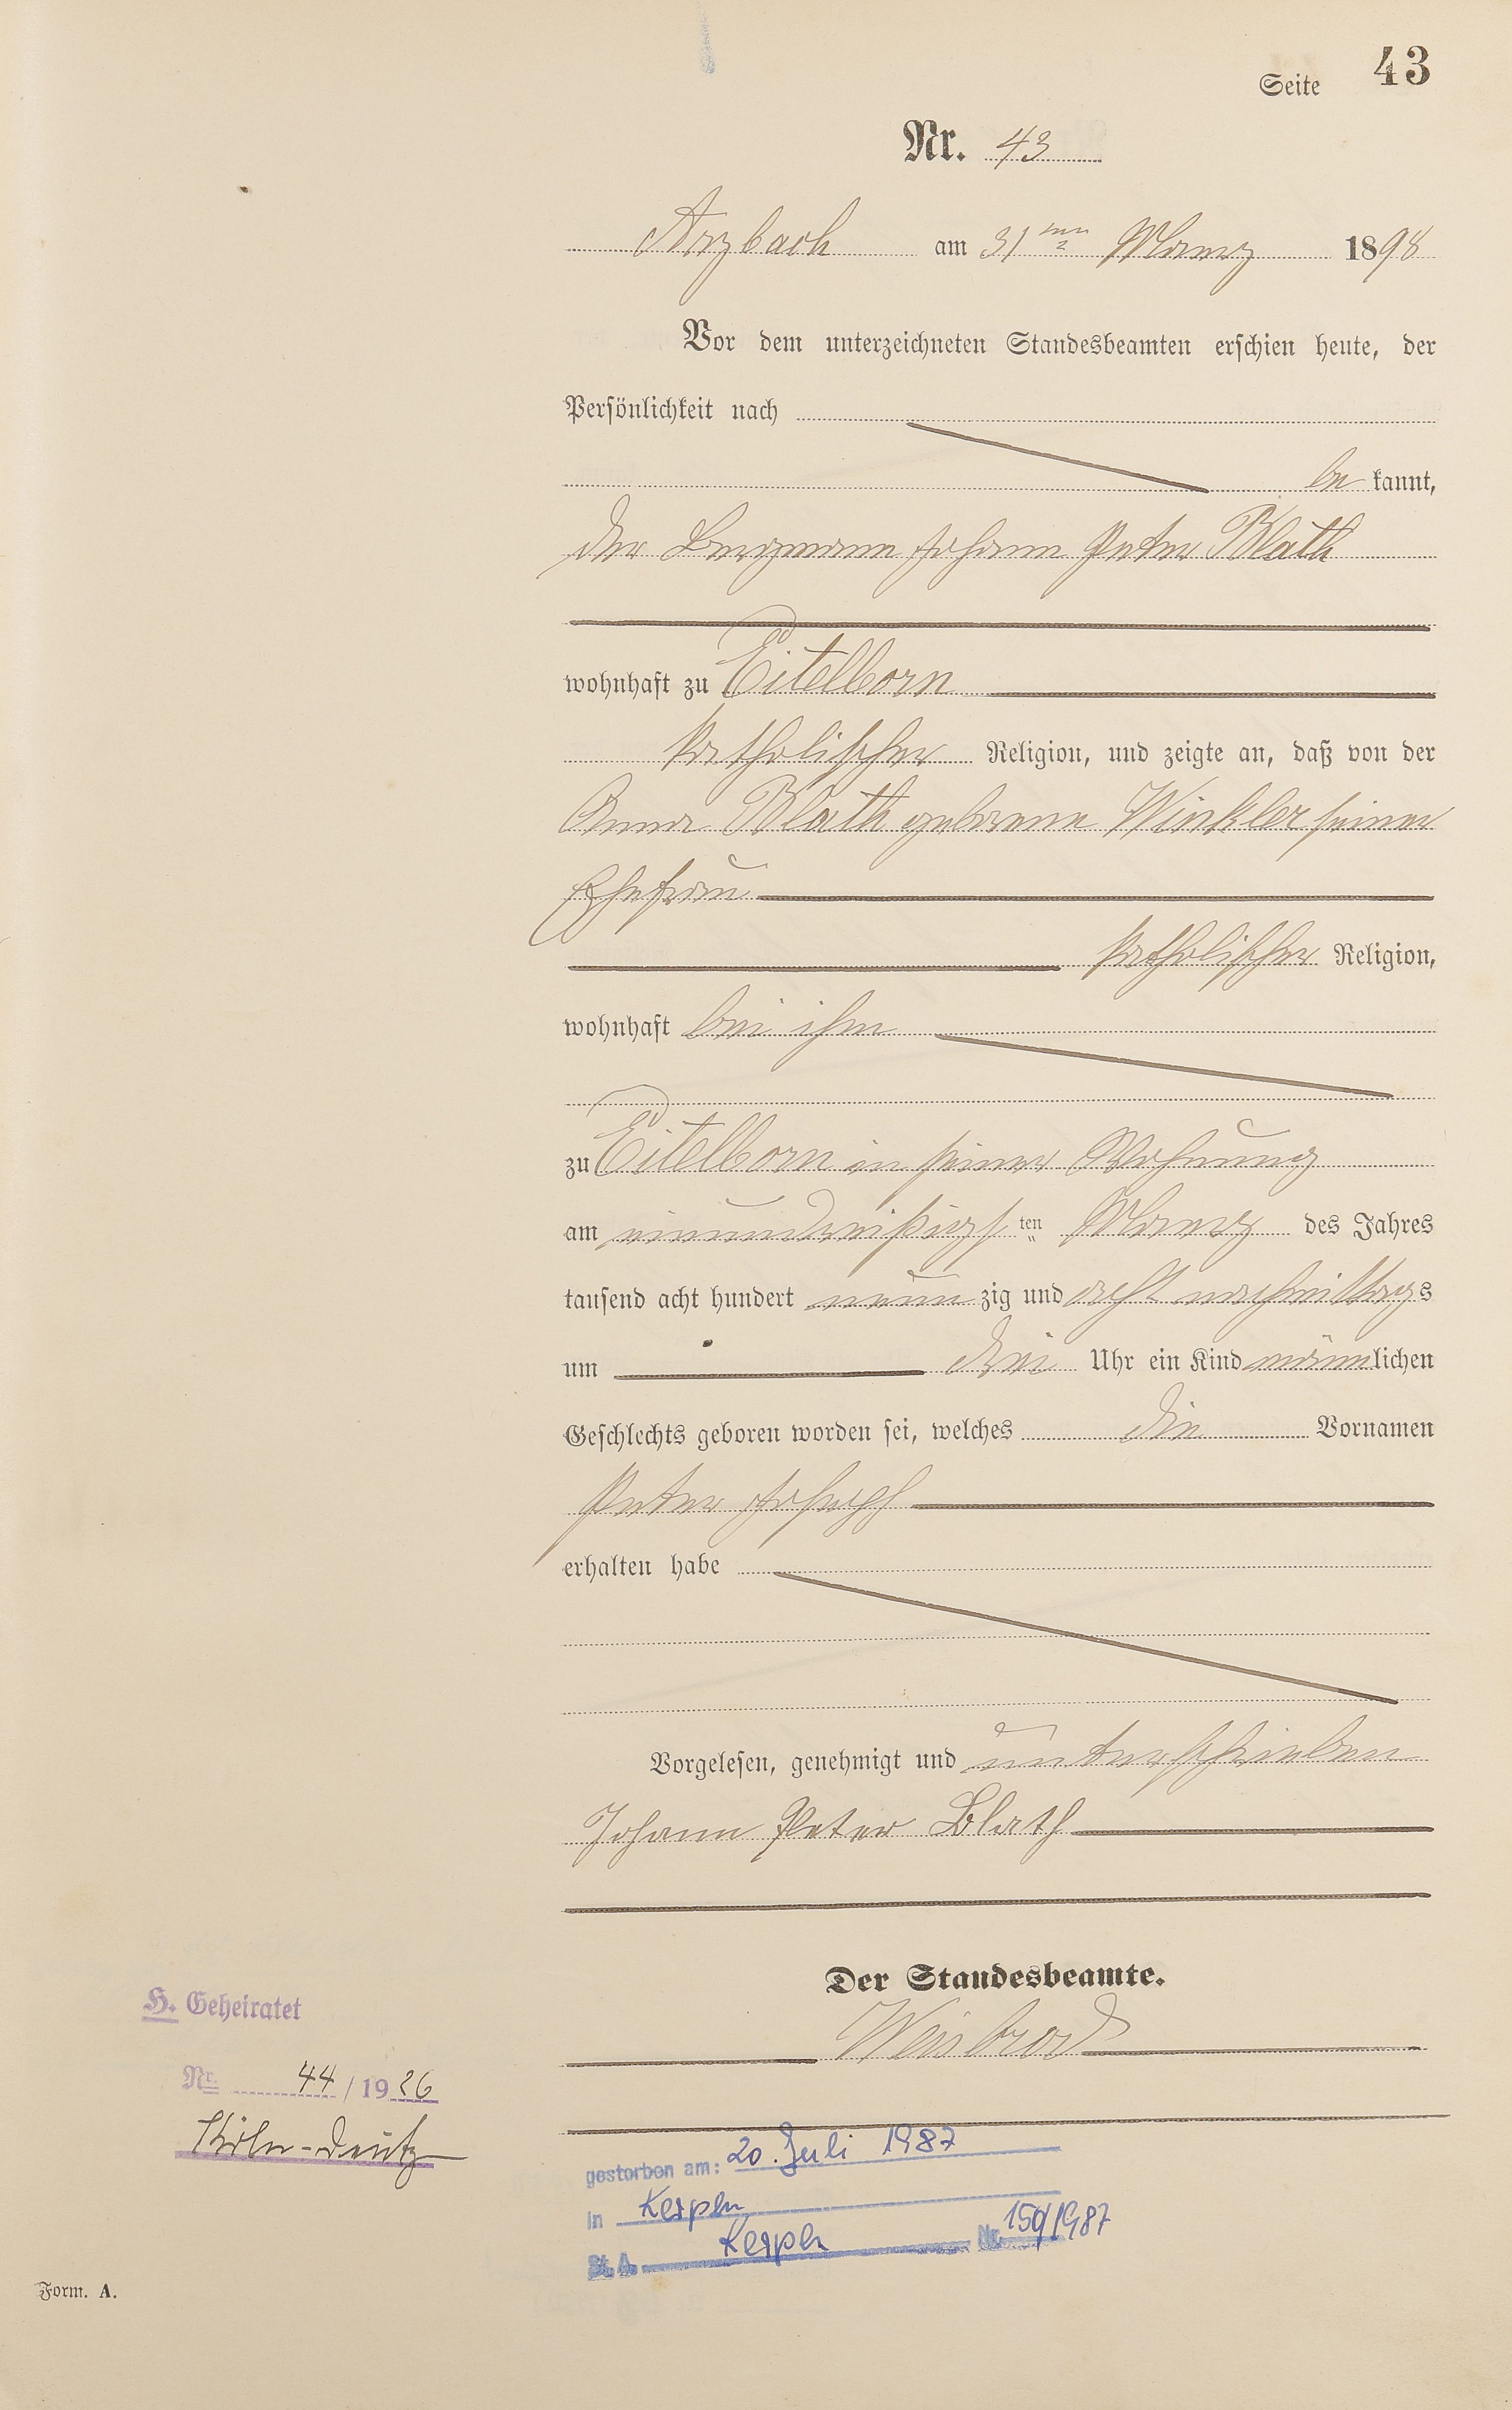 Seite 43
Nr. 43
Arzbach am 31ten Maerz 1898
Vor dem unterzeichneten Standesbeamten erschien heute, der
Persönlichkeit nach
be kannt,
der Bergmann Johann Peter Blath
wohnhaft zu Eitelborn
katholischer Religion, und zeigte an, daß von der
Anna Blath geborene Winkler seiner
Ehefrau
katholischer Religion,
wohnhaft bei ihm
zu Eitelborn in seiner Wohnung
am einunddreißigsten Maerz des Jahres
tausend acht hundert neun zig und acht nachmittags
um drei Uhr ein Kind männlichen
Geschlechts geboren worden sei, welches die Vornamen
Peter Joseph
erhalten habe
Vorgelesen, genehmigt und unterschrieben
Johann Peter Blath
Der Standesbeamte.
Weisbrod
H. Geheiratet
Nr. 44/1926
Köln-Deutz
gestorben am: 20. Juli 1987
in Kerpen
St. A. Kerpen Nr. /1987
Form. A.